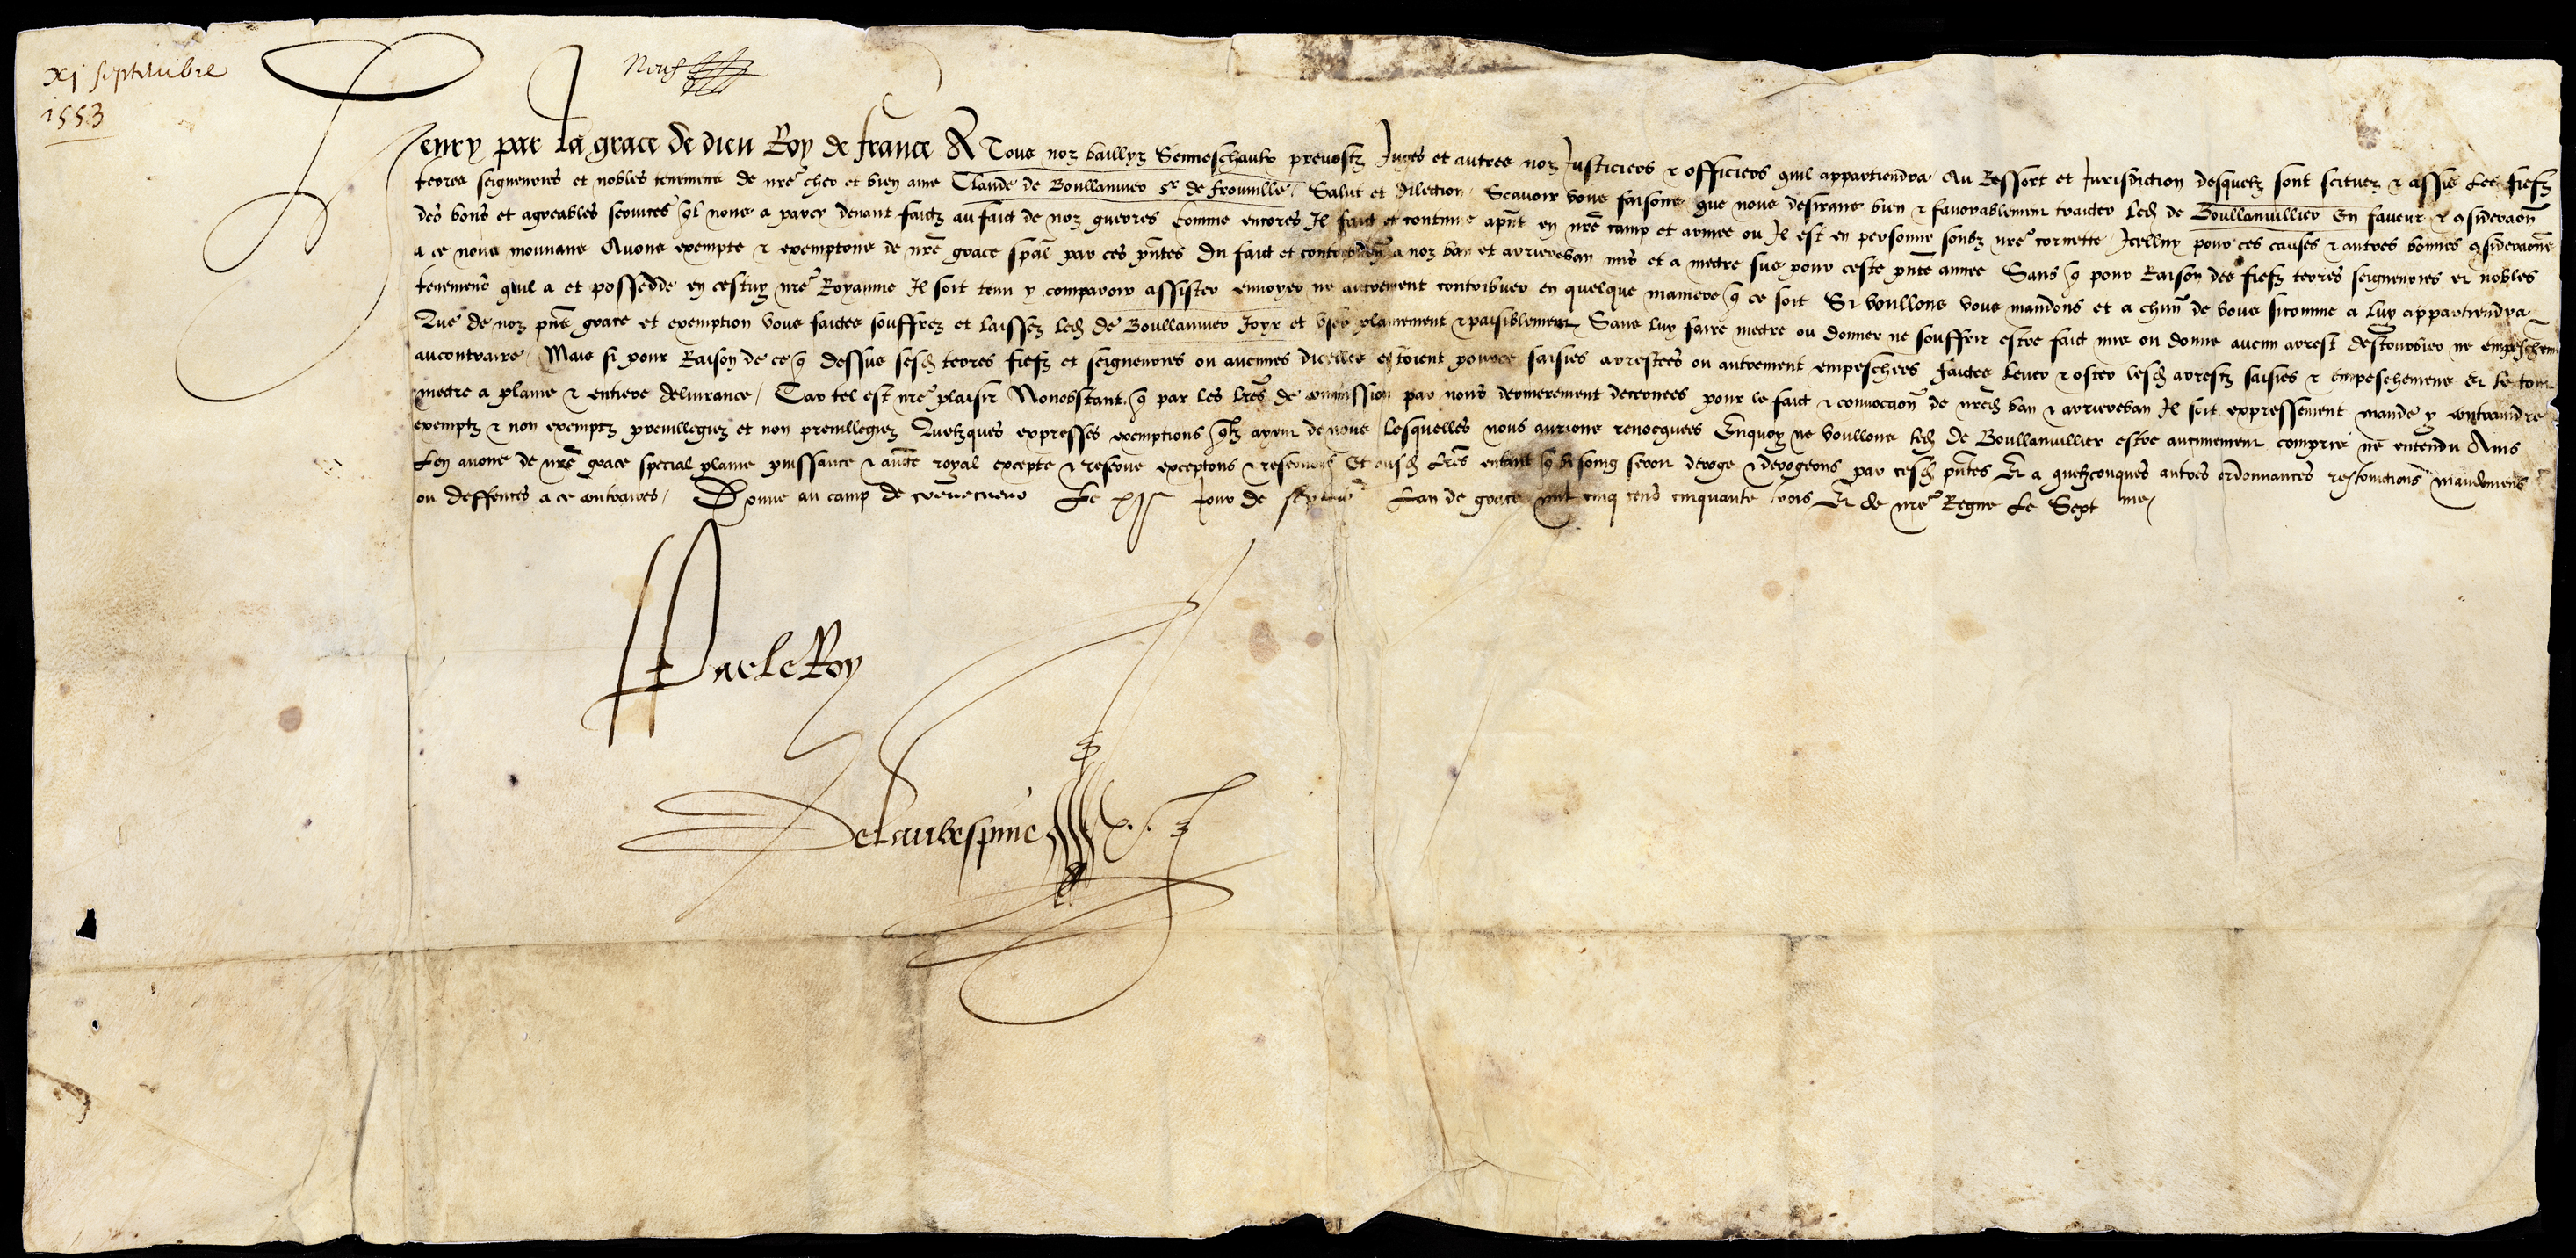 xj septembre
1553
Neuf
Henry par la grace de dieu Roy de france A Tous noz baillyz Senneschaulx prevostz Juges et autres noz Justiciers & officiers quil appartiendra Au Ressort et Jurisdiction desquelz sont scituez & assis les fiefz
terres seigneuries et nobles tenemens de nre cher et bien ame Claude de Boullanvier sr de frouville Salut et dilection Scavoir vous faisons que nous desirans bien & favorablement traicter led de Boullanvillier En faveur & 9sideraon
des bons et agreables services ql nous a parcy devant faictz au faict de noz guerres Comme encores Il faict et continue apnt en nre camp et armee ou Il est en personne soubz nre cornette Icelluy pour ces causes & autres bonnes 9sideraons
a ce nous mouvans Avons exempte & exemptons de nre grace spal par ces pntes du faict et contribution a noz ban et arriereban mis et a mectre sus pour ceste pnte annee Sans q pour Raison des fiefz terres seigneuries et nobles
tenemens quil a et possedde en cestuy nre Royaume Il soit tenu y comparoir assister envoyer ne autrement contribuer en quelque maniere q ce soit Si voullons vous mandons et a chun de vous sicomme a luy appartiendra
Que de noz pns grace et exemption vous faictes souffrez et laissez led de Boullanvier Joyr et user plainement & paisiblement Sans luy faire mectre ou donner ne souffrir estre faict mis ou donne aucun arrest destourbier ne empeschement
aucontraire Mais si pour Raison de ce q dessus sesd terres fiefz et seigneuries ou aucunes dicelles estoient pource saisies arrestees ou autrement empeschees faictes lever & oster lesd arrestz saisies & empeschemens Et le tout
mectre a plaine & entiere delivrance Car tel est nre plaisir Nonobstant q par les lres de commission par nous dernierement decernees pour le faict & convocaon de nred ban & arriereban Il soit expressement mande y contraindre
exemptz & non exemptz previllegiez et non previllegiez Quelzques expresses exemptions qlz ayent de nous lesquelles nous aurions revocquees Enquoy ne voullons led de Boullanvillier estre aucunement compris ne entendu Ains
Len avons de nre grace special plaine puissance & aucte royal excepte & reserve exceptons & reservons Et ausd lres entant q besoing seroit deroge & derogeons par cesd pntes Et a quelzconques autres ordonnances restrinctions mandemens
ou deffences a ce contraires Donne au camp de Le xje Jour de septembre Lan de grace mil cinq cens cinquante trois Et de nre Regne Le Septme
Par le Roy
Delaubespine